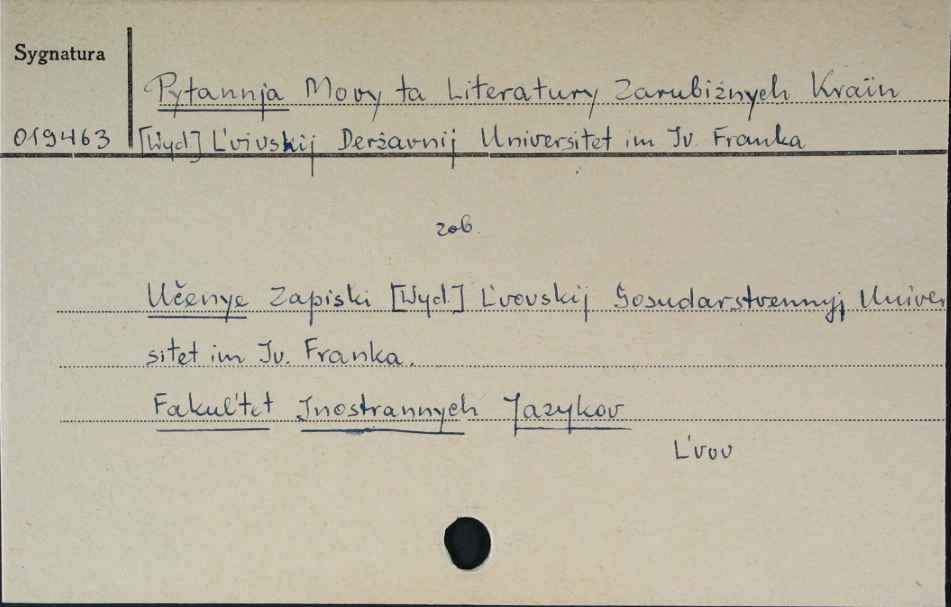 Sygnatura
Pytannja Movy ta Literatury Zarubižnych Kraïn
019463 [Wyd.] L'vivskij Deržavnij Universitet im Iv. Franka
zob.
Učenye Zapiski [Wyd.] L'vovskij Gosudarstvennyj Univer
sitet im Iv. Franka.
Fakul'tet Inostrannych Jazykov
L'vov